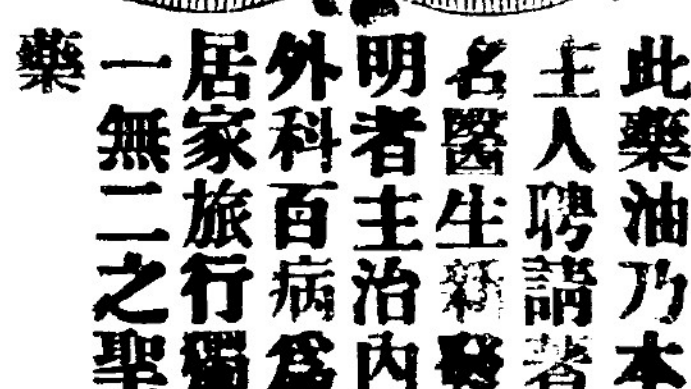 此藥油乃本
主人聘請著
名醫生新發
明者主治內
外科百病爲
居家旅行獨
一無二之聖
藥